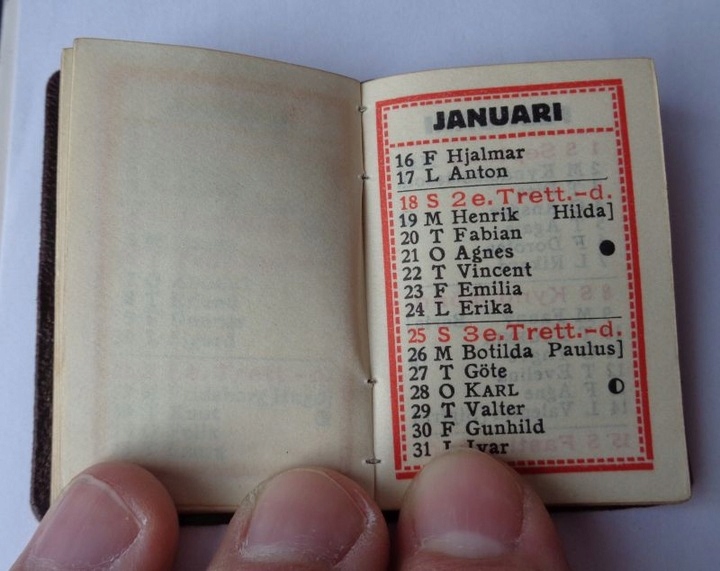 JANUARI
16 F Hjalmar
17 L Anton
18 S 2 e. Trett.-d.
19 M Henrik Hilda]
20 T Fabian
21 O Agnes
22 T Vincent
23 F Emilia
24 L Erika
25 S 3 e. Trett.-d.
26 M Botilda Paulus]
27 T Göte
28 O KARL
29 T Valter
30 F Gunhild
31 L Ivar